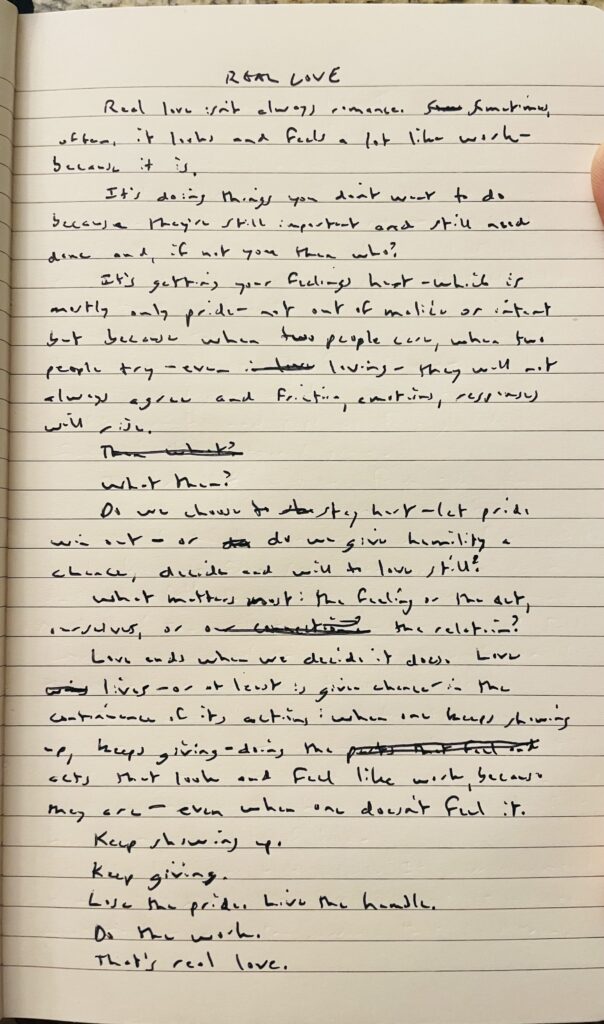 REAL LOVE
Real love isn't always romance. Sometimes,
often, it looks and feels a lot like work–
because it is.
It's doing things you don't want to do
because they're still important and still need
done and, if not you then who?
It's getting your feelings hurt – which is
mostly only pride – not out of malice or intent
but because when two people care, when two
people try – even loving – they will not
always agree and friction, emotions, responses
will rise.
Then what?
What then?
Do we choose to stay hurt – let pride
win out – or do we give humility a
chance, decide and will to love still?
What matters most: the feeling or the act,
ourselves, or our connection? the relation?
Love ends when we decide it does. Love
lives – or at least is given chance – in the
continuance of its actions: when one keeps showing
up, keeps giving – doing the parts that feel and
acts that look and feel like work, because
they are – even when one doesn't feel it.
Keep showing up.
Keep giving.
Lose the pride. Live the humble.
Do the work.
That's real love.